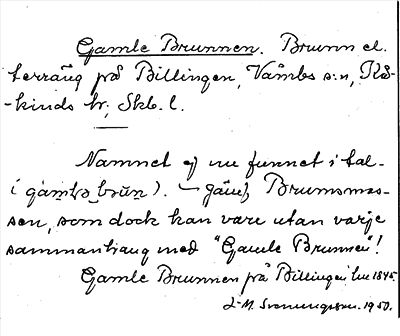 Gamle Brunnen. Brunn el.
terräng på Billingen, Våmbs s:n, Kå-
-kinds hr, Skb. l.
Namnet ej nu funnet i tal-
i (gamlə brun). — Jämf. Brunnsmos-
sen, som dock kan vara utan varje
sammanhang med "Gamle Brunnen"!
Gamle Brunnen på Billingen 1845.
J. M. Svenungsson. 1950.